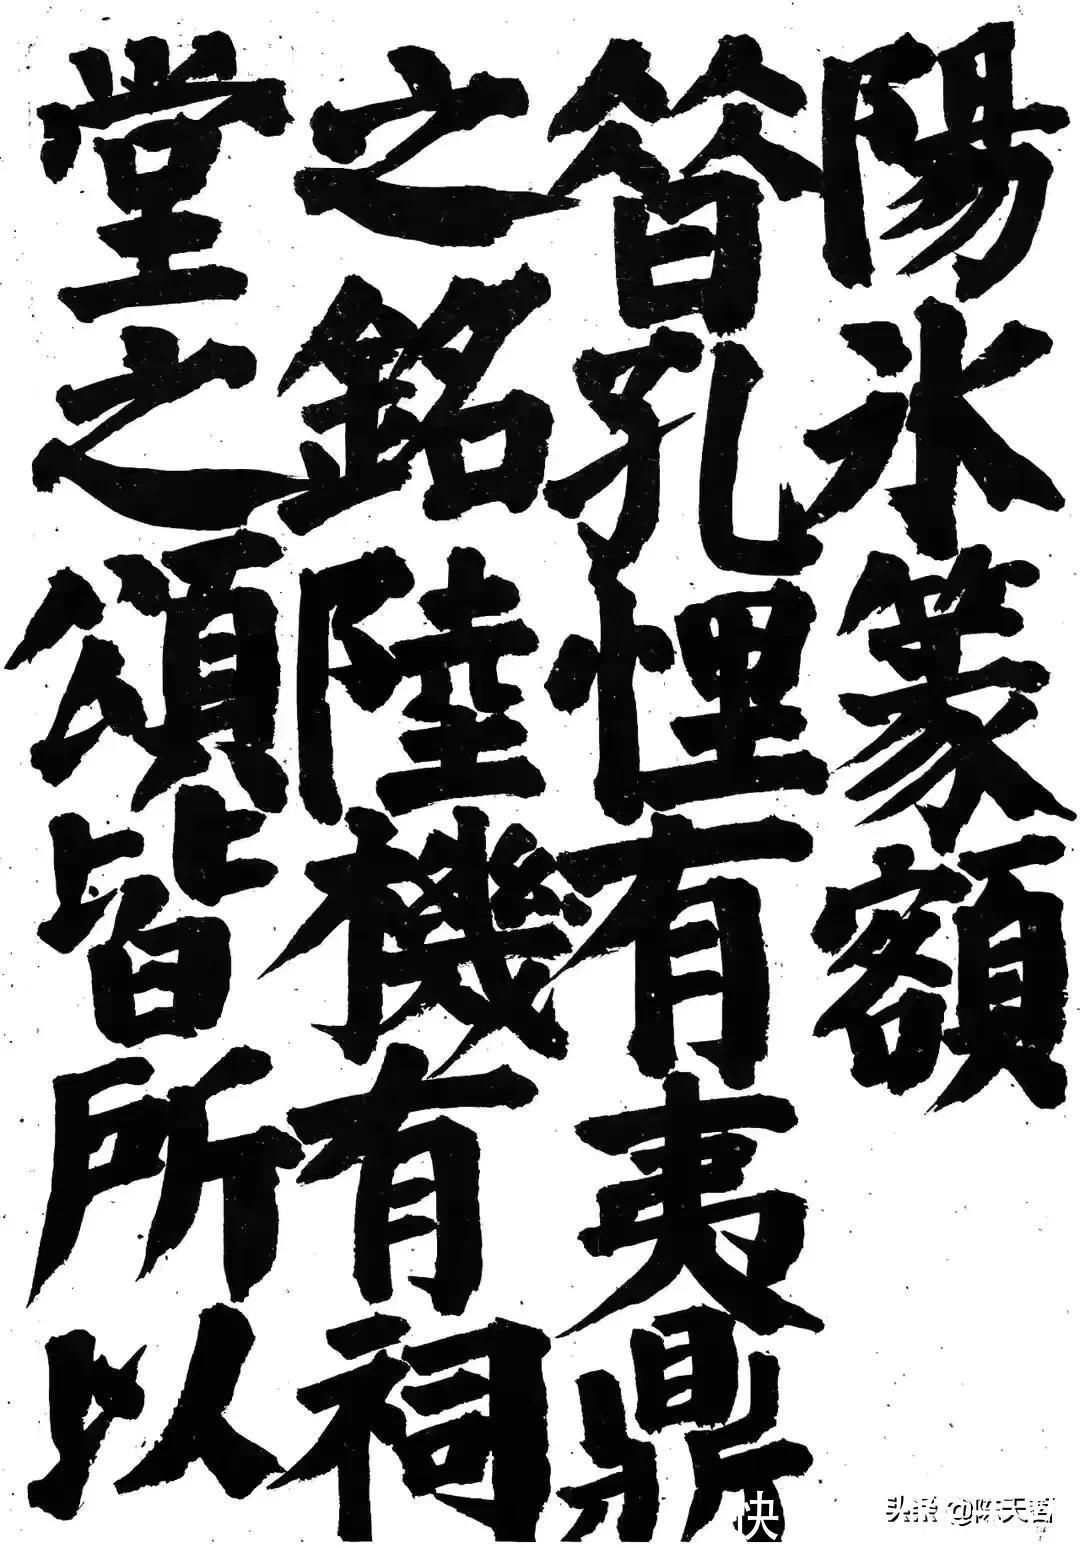 陽冰篆額
昔孔悝有夷鼎
之銘陸機有祠
堂之頌皆所以
快
头条 @陈天